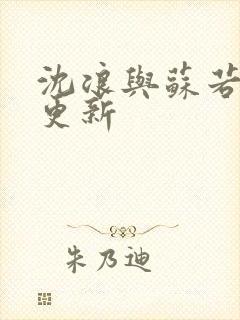 沈浪與蘇若
更新
朱乃迪